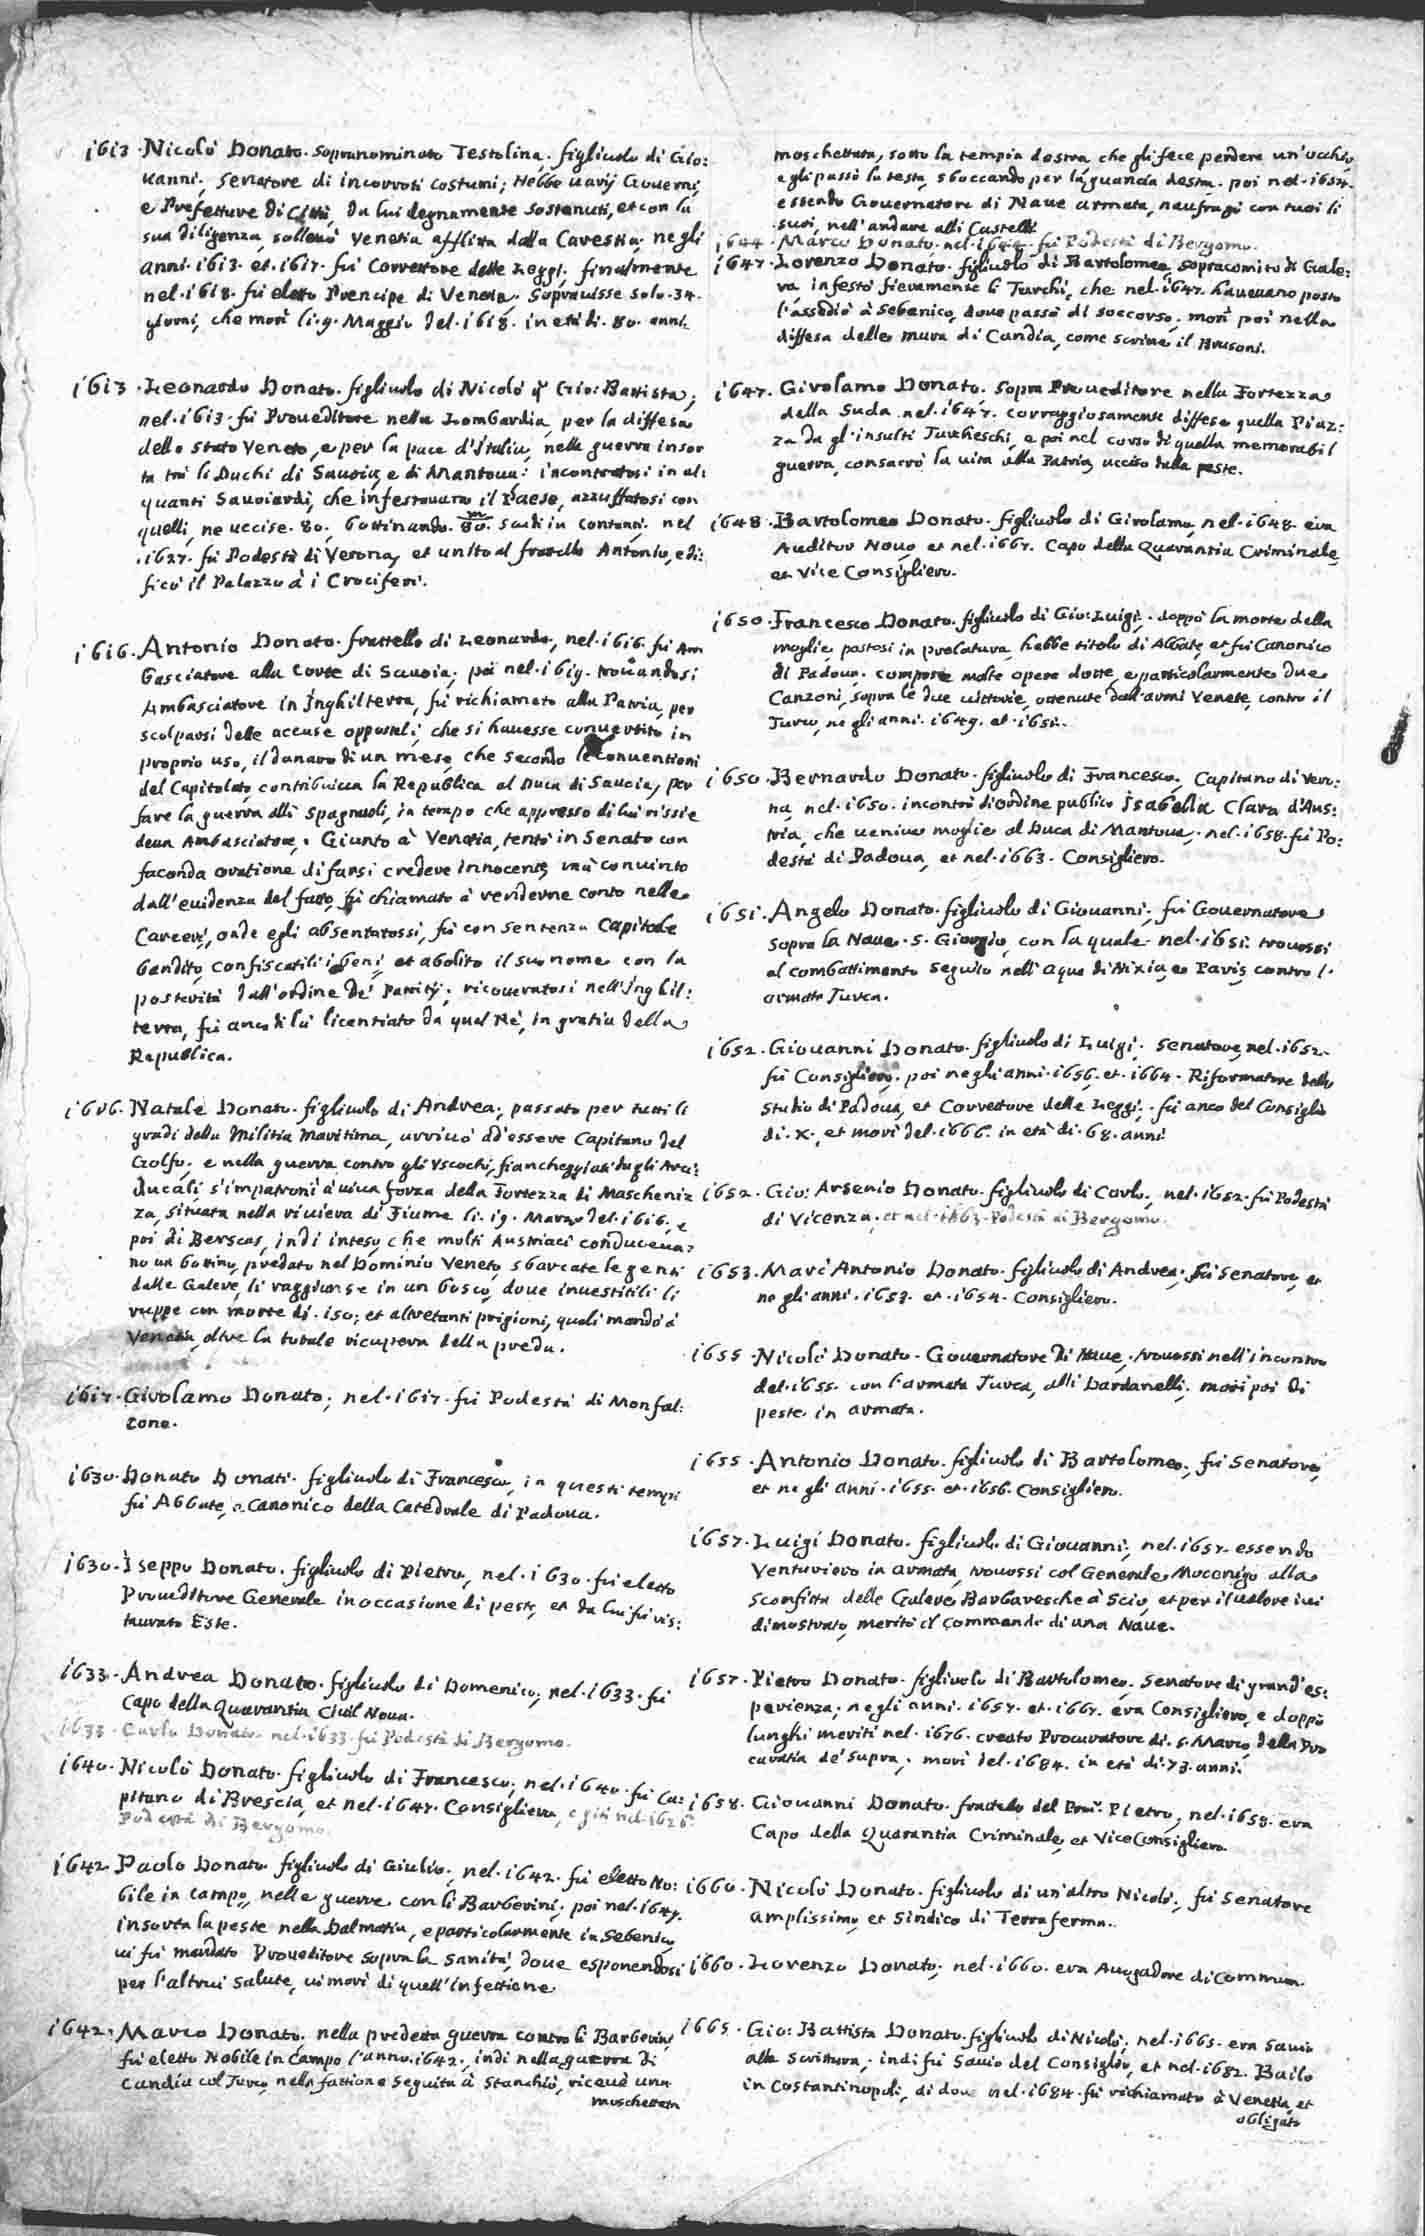 1613 · Nicolò Donato · sopranominato Testolina, figliuolo di Gio:
uanni, Senatore di incorroti costumi; Hebbe uarij Gouerni,
e Prefetture di Città, da lui degnamente sostenuti, et con la
sua diligenza, solleuò Venetia afflitta dalla Carestia; ne gli
anni · 1613 · et · 1617 · fù Correttore delle Leggi; finalmente
nel · 1618 · fù eletto Prencipe di Venetia. Soprauisse solo · 34 ·
giorni, che morì li · 9 · Maggio del · 1618 · in età di · 80 · anni.
1613 · Leonardo Donato · figliuolo di Nicolò q. Gio: Battista;
nel · 1613 · fù Proueditore nella Lombardia, per la diffesa
dello stato Veneto, e per la pace d'Italia, nella guerra insor
ta trà li Duchi di Sauoia, e di Mantoua: incontratosi in al:
quanti Sauoiardi, che infestauano il Paese, azzuffatosi con
quelli, ne uccise · 80 · bottinando · 80 · scudi in contanti. nel
· 1627 · fù Podestà di Verona, et unito al fratello Antonio, edi:
ficò il Palazzo à i Crociferi.
1616 · Antonio Donato · frattello di Leonardo, nel · 1616 · fù Am
basciatore alla Corte di Sauoia; poi nel · 1619 · trouandosi
Ambasciatore in Inghilterra, fù richiamato alla Patria, per
scolparsi delle accuse oppostoli, che si hauesse conuertito in
proprio uso, il danaro di un mese, che secondo le conuentioni
del Capitolato, contribuiua la Republica al Duca di Sauoia, per
fare la guerra alli Spagnuoli, in tempo che appresso di lui rissie
deua Ambasciatore. Giunto à Venetia, tentò in Senato con
faconda oratione di farsi credere innocente, mà conuinto
dall'euidenza del fatto, fù chiamato à renderne conto nelle
Carceri, onde egli absentatossi, fù con sentenza Capitale
bandito, confiscatili i beni, et abolito il suo nome con la
posterità dall'ordine de' Patritij; ricoueratosi nell'Inghil:
terra, fù anco di là licentiato da quel Rè, in gratia della
Republica.
1616 · Natale Donato · figliuolo di Andrea; passato per tutti li
gradi della Militia Maritima, arriuò ad'essere Capitano del
Golfo; e nella guerra contro gli Vscochi, fiancheggiati dagli Arci:
Ducali, s'impatronì à uiua forza della Fortezza di Mascheniz
za, situata nella riuiera di Fiume li · 19 · Marzo del · 1616, e
poi di Berscez, indi inteso, che molti Austriaci conduceua:
no un bottino, predato nel Dominio Veneto, sbarcate le genti
dalle Galere, li raggiunse in un bosco, doue inuestitili li
ruppe con morte di · 150; et altretanti prigioni, quali mandò à
Venetia, oltre la totale ricupera della preda.
1617 · Girolamo Donato; nel · 1617 · fù Podestà di Monfal:
cone.
1630 · Donato Donati · figliuolo di Francesco, in questi tempi
fù Abbate, e Canonico della Catedrale di Padoua.
1630 · Iseppo Donato · figliuolo di Pietro, nel · 1630 · fù eletto
Proueditore Generale in occasione di peste, et da lui fù ris:
taurato Este.
1633 · Andrea Donato · figliuolo di Domenico; nel · 1633 · fù
Capo della Quarantia Ciuil Noua.
1633 · Carlo Donato · nel · 1633 · fù Podestà di Bergomo.
1640 · Nicolò Donato · figliuolo di Francesco; nel · 1640 · fù Ca:
pitano di Brescia, et nel · 1647 · Consigliero, nel · 1626
Podestà di Bergomo.
1642 · Paolo Donato · figliuolo di Giulio; nel · 1642 · fù eletto No:
bile in campo, nelle guerre con li Barberini; poi nel · 1649 ·
insorta la peste nella Dalmatia, e particolarmente in Sebenico,
ui fù mandato Proueditore sopra la Sanità, doue esponendosi
per l'altrui salute, ui morì di quell'infettione.
1642 · Marco Donato · nella predetta guerra contro li Barberini,
fù eletto Nobile in Campo l'anno · 1642 ·, indi nella guerra di
Candia col Turco, nella fattione seguita à Stanchiò, riceuè una
moschettata
moschettata, sotto la tempia destra che gli fece perdere un'occhio,
e gli passò la testa, sboccando per la guancia destra. poi nel · 1654 ·
essendo Gouernatore di Naue armata, naufragò con tutti li
suoi, nell'andare alli Castelli.
1644 · Marco Donato · nel · 1644 · fù Podestà di Bergomo.
1647 · Lorenzo Donato · figliuolo di Bartolomeo, sopracomito di Gale:
ra infestò fieramente li Turchi, che nel · 1647 · haueuano posto
l'assedio à Sebenico, doue passò di soccorso; morì poi nella
diffesa delle mura di Candia, come scriue il Brusoni.
1647 · Girolamo Donato · sopra Proueditore nella Fortezza
della Suda · nel · 1647 · corraggiosamente diffese quella Piaz:
za da gl'insulti Turcheschi, e poi nel corso di quella memorabil
guerra, consacrò la uita alla Patria, ucciso dalla peste.
1648 · Bartolomeo Donato · figliuolo di Girolamo, nel · 1648 · era
Auditor Nouo, et nel · 1667 · Capo della Quarantia Criminale,
et Vice Consigliero.
1650 · Francesco Donato · figliuolo di Gio: Luigi; doppò la morte della
moglie, postosi in prelatura, hebbe titolo di Abbate, et fù Canonico
di Padoua. compose molte opere dotte, e particolarmente due
Canzoni, sopra le due uittorie, ottenute dall'armi Venete, contro il
Turco, ne gli anni · 1649 · et · 1651.
1650 · Bernardo Donato · figliuolo di Francesco, Capitano di Vero:
na, nel · 1650 · incontrò d'ordine publico Isabella Clara d'Aus:
tria, che ueniua moglie al Duca di Mantoua; nel · 1658 · fù Po:
destà di Padoua, et nel · 1663 · Consigliero.
1651 · Angelo Donato · figliuolo di Giouanni; fù Gouernatore
sopra la Naue · S. Giorgio, con la quale nel · 1651 · trouossi
al combattimento seguito nell'aque di Nixia, e Paris, contro l'
armata Turca.
1652 · Giouanni Donato · figliuolo di Luigi; Senatore, nel · 1652 ·
fù Consigliero, poi negli anni · 1656 · et · 1664 · Riformatore dello
studio di Padoua, et Correttore delle Leggi; fù anco del Consiglio
di · X ·, et morì del · 1666 · in età di · 68 · anni.
1652 · Gio: Arsenio Donato · figliuolo di Carlo; nel · 1652 · fù Podestà
di Vicenza, et nel · 1663 · Podestà di Bergomo.
1653 · Marc'Antonio Donato · figliuolo di Andrea; fù Senatore, et
ne gli anni · 1653 · et · 1654 · Consigliero.
1655 · Nicolò Donato · Gouernatore di Naue, trouossi nell'incontro
del · 1655 · con l'armata Turca, alli Dardanelli; morì poi di
peste in armata.
1655 · Antonio Donato · figliuolo di Bartolomeo, fù Senatore,
et ne gli anni · 1655 · et · 1656 · Consigliero.
1657 · Luigi Donato · figliuolo di Giouanni; nel · 1657 · essendo
Venturiero in armata, trouossi col Generale Mocenigo alla
sconfitta delle Galere Barbaresche à Scio, et per il ualore iui
dimostrato, meritò il commando di una Naue.
1657 · Pietro Donato · figliuolo di Bartolomeo, Senatore di grand'es:
perienza; ne gli anni · 1657 · et · 1667 · era Consigliero, e doppò
lunghi meriti nel · 1676 · creato Procuratore di · S. Marco, della Pro
curatia de' supra; morì del · 1684 · in età di · 73 · anni.
1658 · Giouanni Donato · fratello del Proc.r Pietro, nel · 1658 · era
Capo della Quarantia Criminale, et Vice Consigliero.
1660 · Nicolò Donato · figliuolo di un'altro Nicolò; fù Senatore
amplissimo, et Sindico di Terraferma.
1660 · Lorenzo Donato; nel · 1660 · era Auogadore di Commun.
1665 · Gio: Battista Donato · figliuolo di Nicolò; nel · 1665 · era Sauio
alla Scrittura; indi fù Sauio del Consiglio, et nel · 1682 · Bailo
in Costantinopoli, di doue nel · 1684 · fù richiamato à Venetia, et
obligato